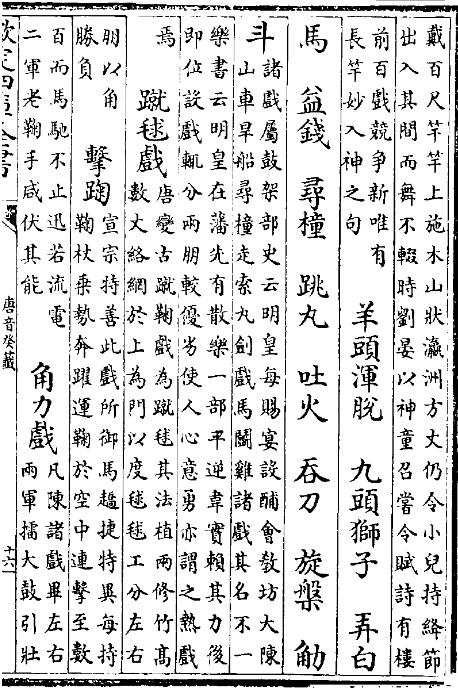 戴百尺竿竿上施木山狀瀛洲方丈仍令小兒持絳節
出入其間而舞不輟時劉晏以神童召嘗令賦詩有樓
前百戲競爭新唯有
長竿妙入神之句
羊頭渾脫　九頭獅子　弄白
馬　益錢　尋橦　跳丸　吐火　吞刀　旋槃　觔
斗
諸戲屬鼓架部史云明皇每賜宴設酺會教坊大陳
山車旱船尋橦走索丸劍戲馬鬭雞諸戲其名不一
樂書云明皇在藩先有散樂一部平逆韋實賴其力後
即位設戲輒分兩朋較優劣使人心意勇亦謂之熱戲
焉
蹴毬戲
唐變古蹴鞠戲為蹴毬其法植兩修竹髙
數丈絡網於上為門以度毬毬工分左右
朋以角
勝負
擊踘
宣宗特善此戲所御馬趫捷特異每持
鞠杖乗勢奔躍運鞠於空中連擊至數
百而馬馳不止迅若流電
二軍老鞠手咸伏其能
角力戲
凡陳諸戲畢左右
兩軍擂大鼓引壯
欽定四庫全書
唐音癸籤
十六